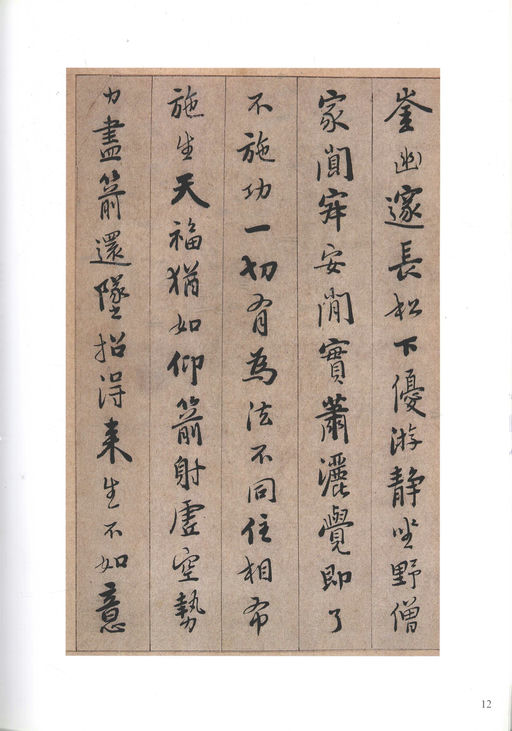 崟幽邃長松下優游靜坐野僧
家闃寂安閒實蕭灑覺即了
不施功一切有為法不同住相布
施生天福猶如仰箭射虛空勢
力盡箭還墜招得來生不如意
12